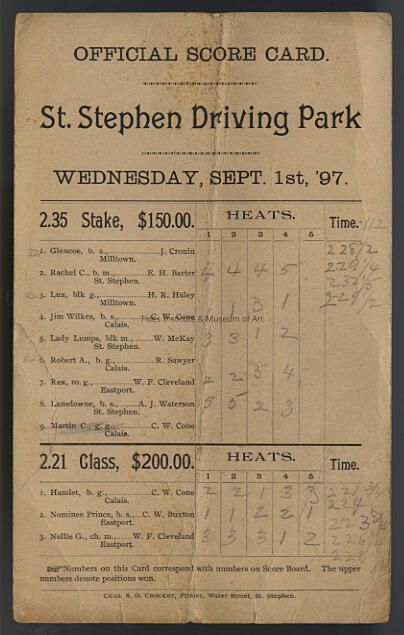 OFFICIAL SCORE CARD.
St. Stephen Driving Park
WEDNESDAY, SEPT. 1st, '97.
2.35 Stake, $150.00. HEATS. Time. 112
1 2 3 4 5
1. Glencoe, b. s., J. Cronin 2 28 1/2
Milltown.
2. Rachel C., b. m., E. H. Barter 4 4 4 5 2 29 1/4
St. Stephen.
3. Lux, blk g., H. R. Haley 1 3 1 2 29 1/2
Milltown.
4. Jim Wilkes, b. s., C. W. Cone
Calais.
Tides Institute & Museum of Art
5. Lady Lumps, blk m., W. McKay 3 3 1 2
St. Stephen.
6. Robert A., b. g., R. Sawyer
Calais.
7. Rex, ro. g., W. F. Cleveland 2 2 5 4
Eastport.
8. Lansdowne, b. s., A. J. Waterson 5 5 2 3
St. Stephen.
9. Martin C., g. g., C. W. Cone
Calais.
2.21 Class, $200.00. HEATS. Time.
1 2 3 4 5
1. Hamlet, b. g., C. W. Cone 2 2 1 3 3
Calais.
2. Nominee Prince, b. s., C. W. Buxton 1 1 2 2 1
Eastport.
3. Nellie G., ch. m., W. F. Cleveland 3 3 3 1 2
Eastport.
Numbers on this Card correspond with numbers on Score Board. The upper
numbers denote positions won.
CHAS. S. O. CROCKET, Printer, Water Street, St. Stephen.